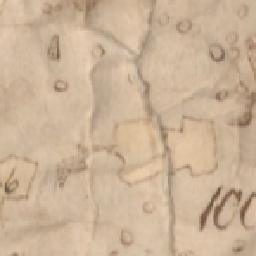 6
100